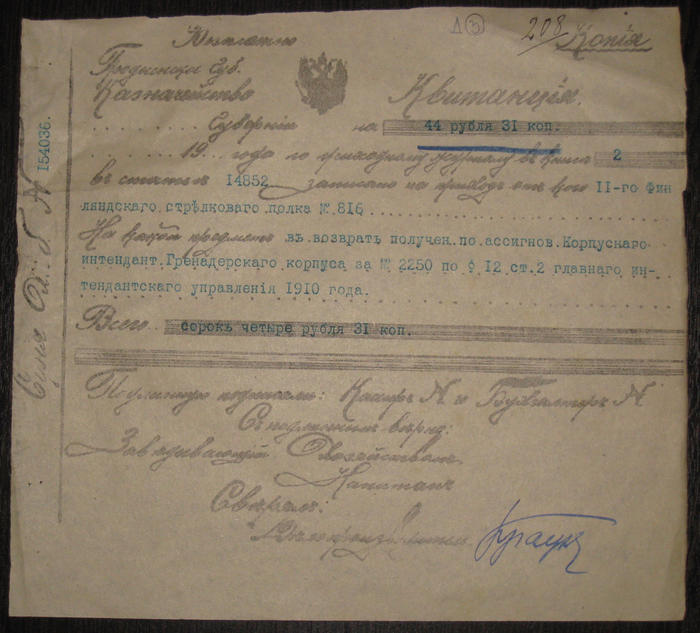 Д ③ 208 Копія
Безплатно
Гродненск. Губ.
Казначейство Квитанція
на 44 рубля 31 коп.
19 года по приходному журналу въ книгѣ 2
въ статьѣ 14852 записано на приходъ отъ кого II-го Фин
ляндскаго стрѣлковаго полка № 816
На какой предметъ въ возвратъ получен.по ассигнов.Корпускаго
интендант.Гренадерскаго корпуса за № 2250 по § I2 ст.2 главнаго ин-
тендантскаго управленія 1910 года.
Всего сорокъ четыре рубля 31 коп.
Подлинную подписали: Кассиръ N. и Бухгалтеръ N.
Съ подлиннымъ вѣрно:
Завѣдывающій Хозяйствомъ
Капитанъ
Свѣрялъ:
Дѣлопроизводитель
Серія N I54036.